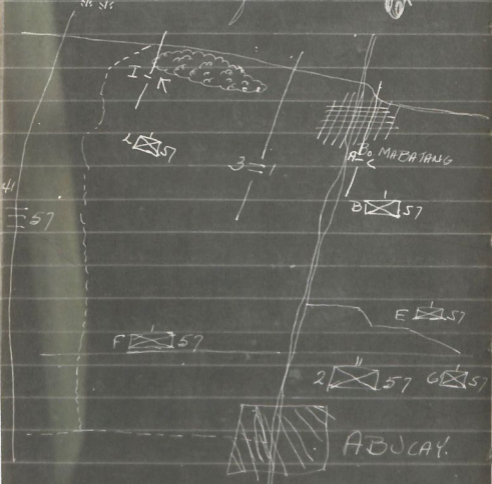 I - K
L 57
3 = 1
Bo. MABATANG
A - C
41
57
B 57
E 57
F 57
2 57 G 57
ABUCAY.